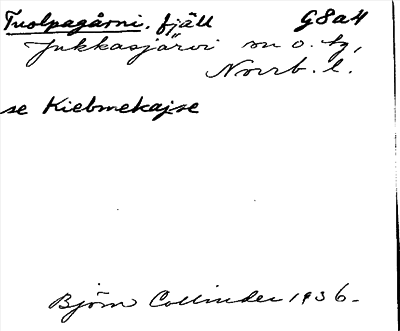 Tuolpagårni, fjäll G8a4
Jukkasjärvi sn o. tg,
Norrb. l.
se Kiebmekajse
Björn Collinder 1936.